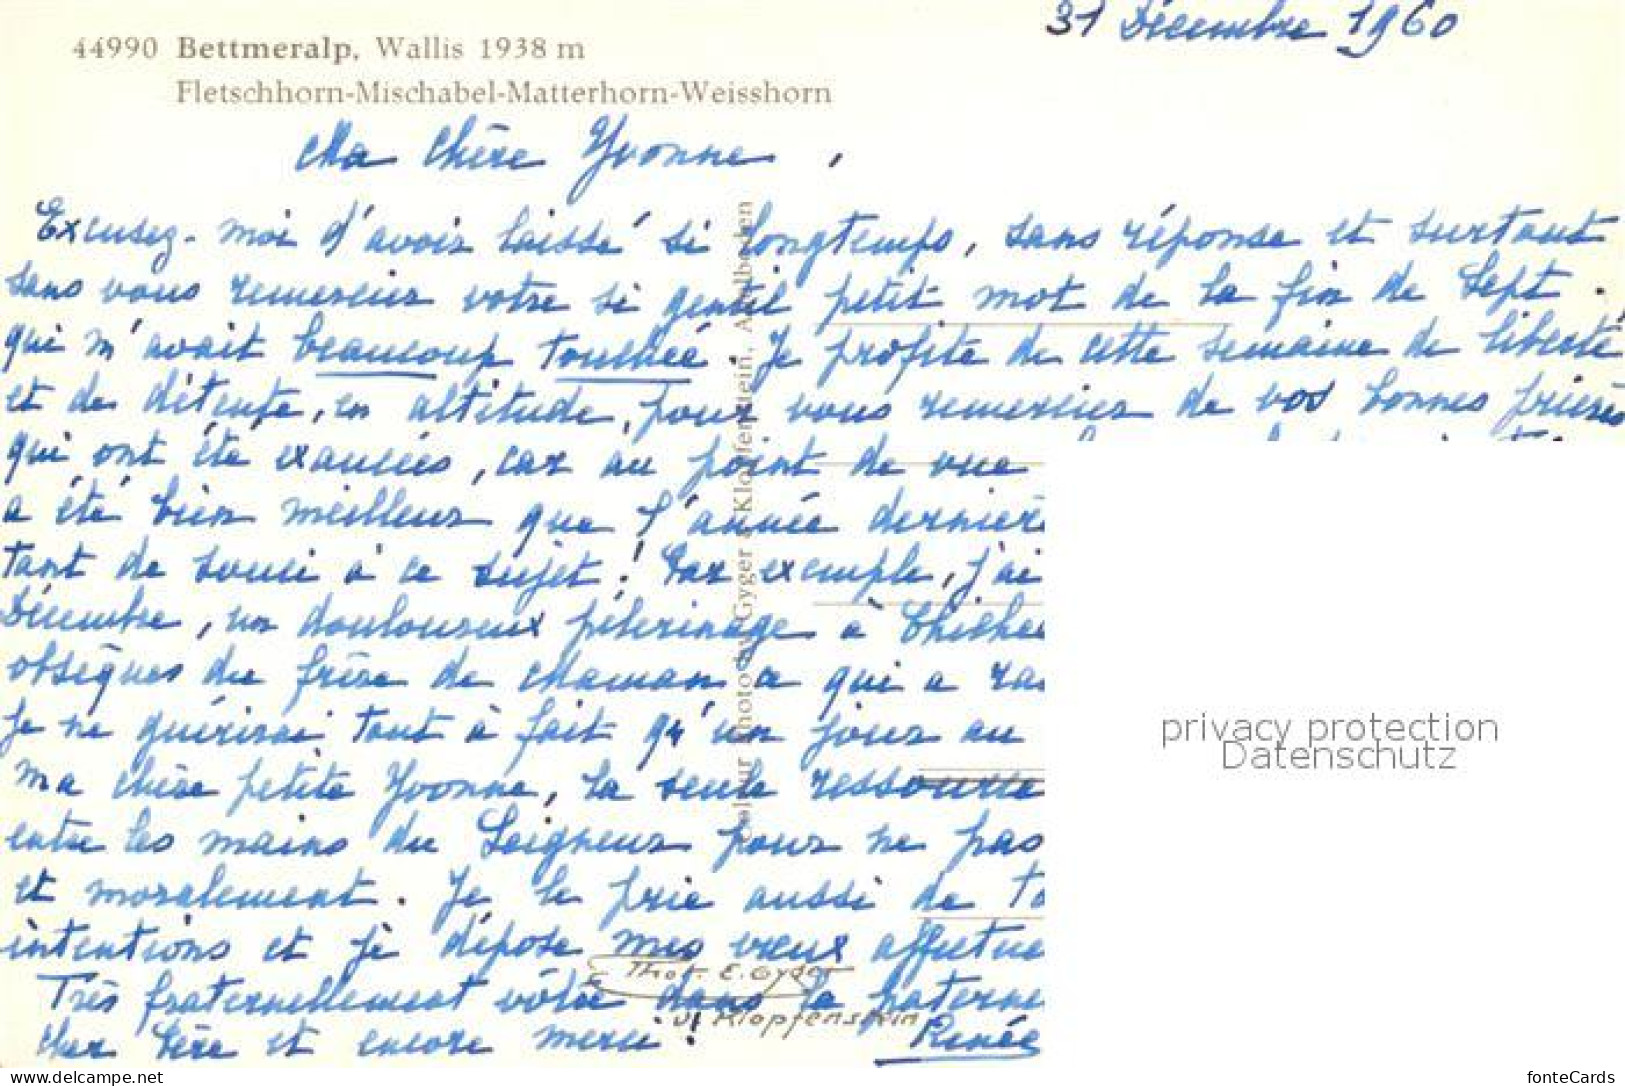 31 Décembre 1960
44990 Bettmeralp, Wallis 1938 m
Fletschhorn-Mischabel-Matterhorn-Weisshorn
Ma Chère Yvonne,
Excusez-moi d'avoir laissé si longtemps, sans réponse et surtout
sans vous remercier votre si gentil petit mot de la fin de Sept.
qui m'avait beaucoup touchée. Je profite de cette semaine de liberté
et de détente, en altitude, pour vous remercier de vos bonnes prières
qui ont été exaucées, car au point de vue
a été bien meilleur que l'année dernière
tant de souci à ce sujet! Par exemple, j'ai
Décembre, un douloureux pèlerinage à
obsèques du frère de Maman ce qui a
Je ne guérirai tout à fait qu'un jour au
ma chère petite Yvonne, la seule ressource
entre les mains du Seigneur pour ne pas
et moralement. Je le prie aussi de
intentions et je dépose mes vœux
Très fraternellement vôtre dans la
cher Père et encore merci! Renée
Colour Photo by Gyger & Klopfenstein, Adelboden
Phot. E. Gyger
u. Klopfenstein
privacy protection
Datenschutz
www.delcampe.net
fonteCards